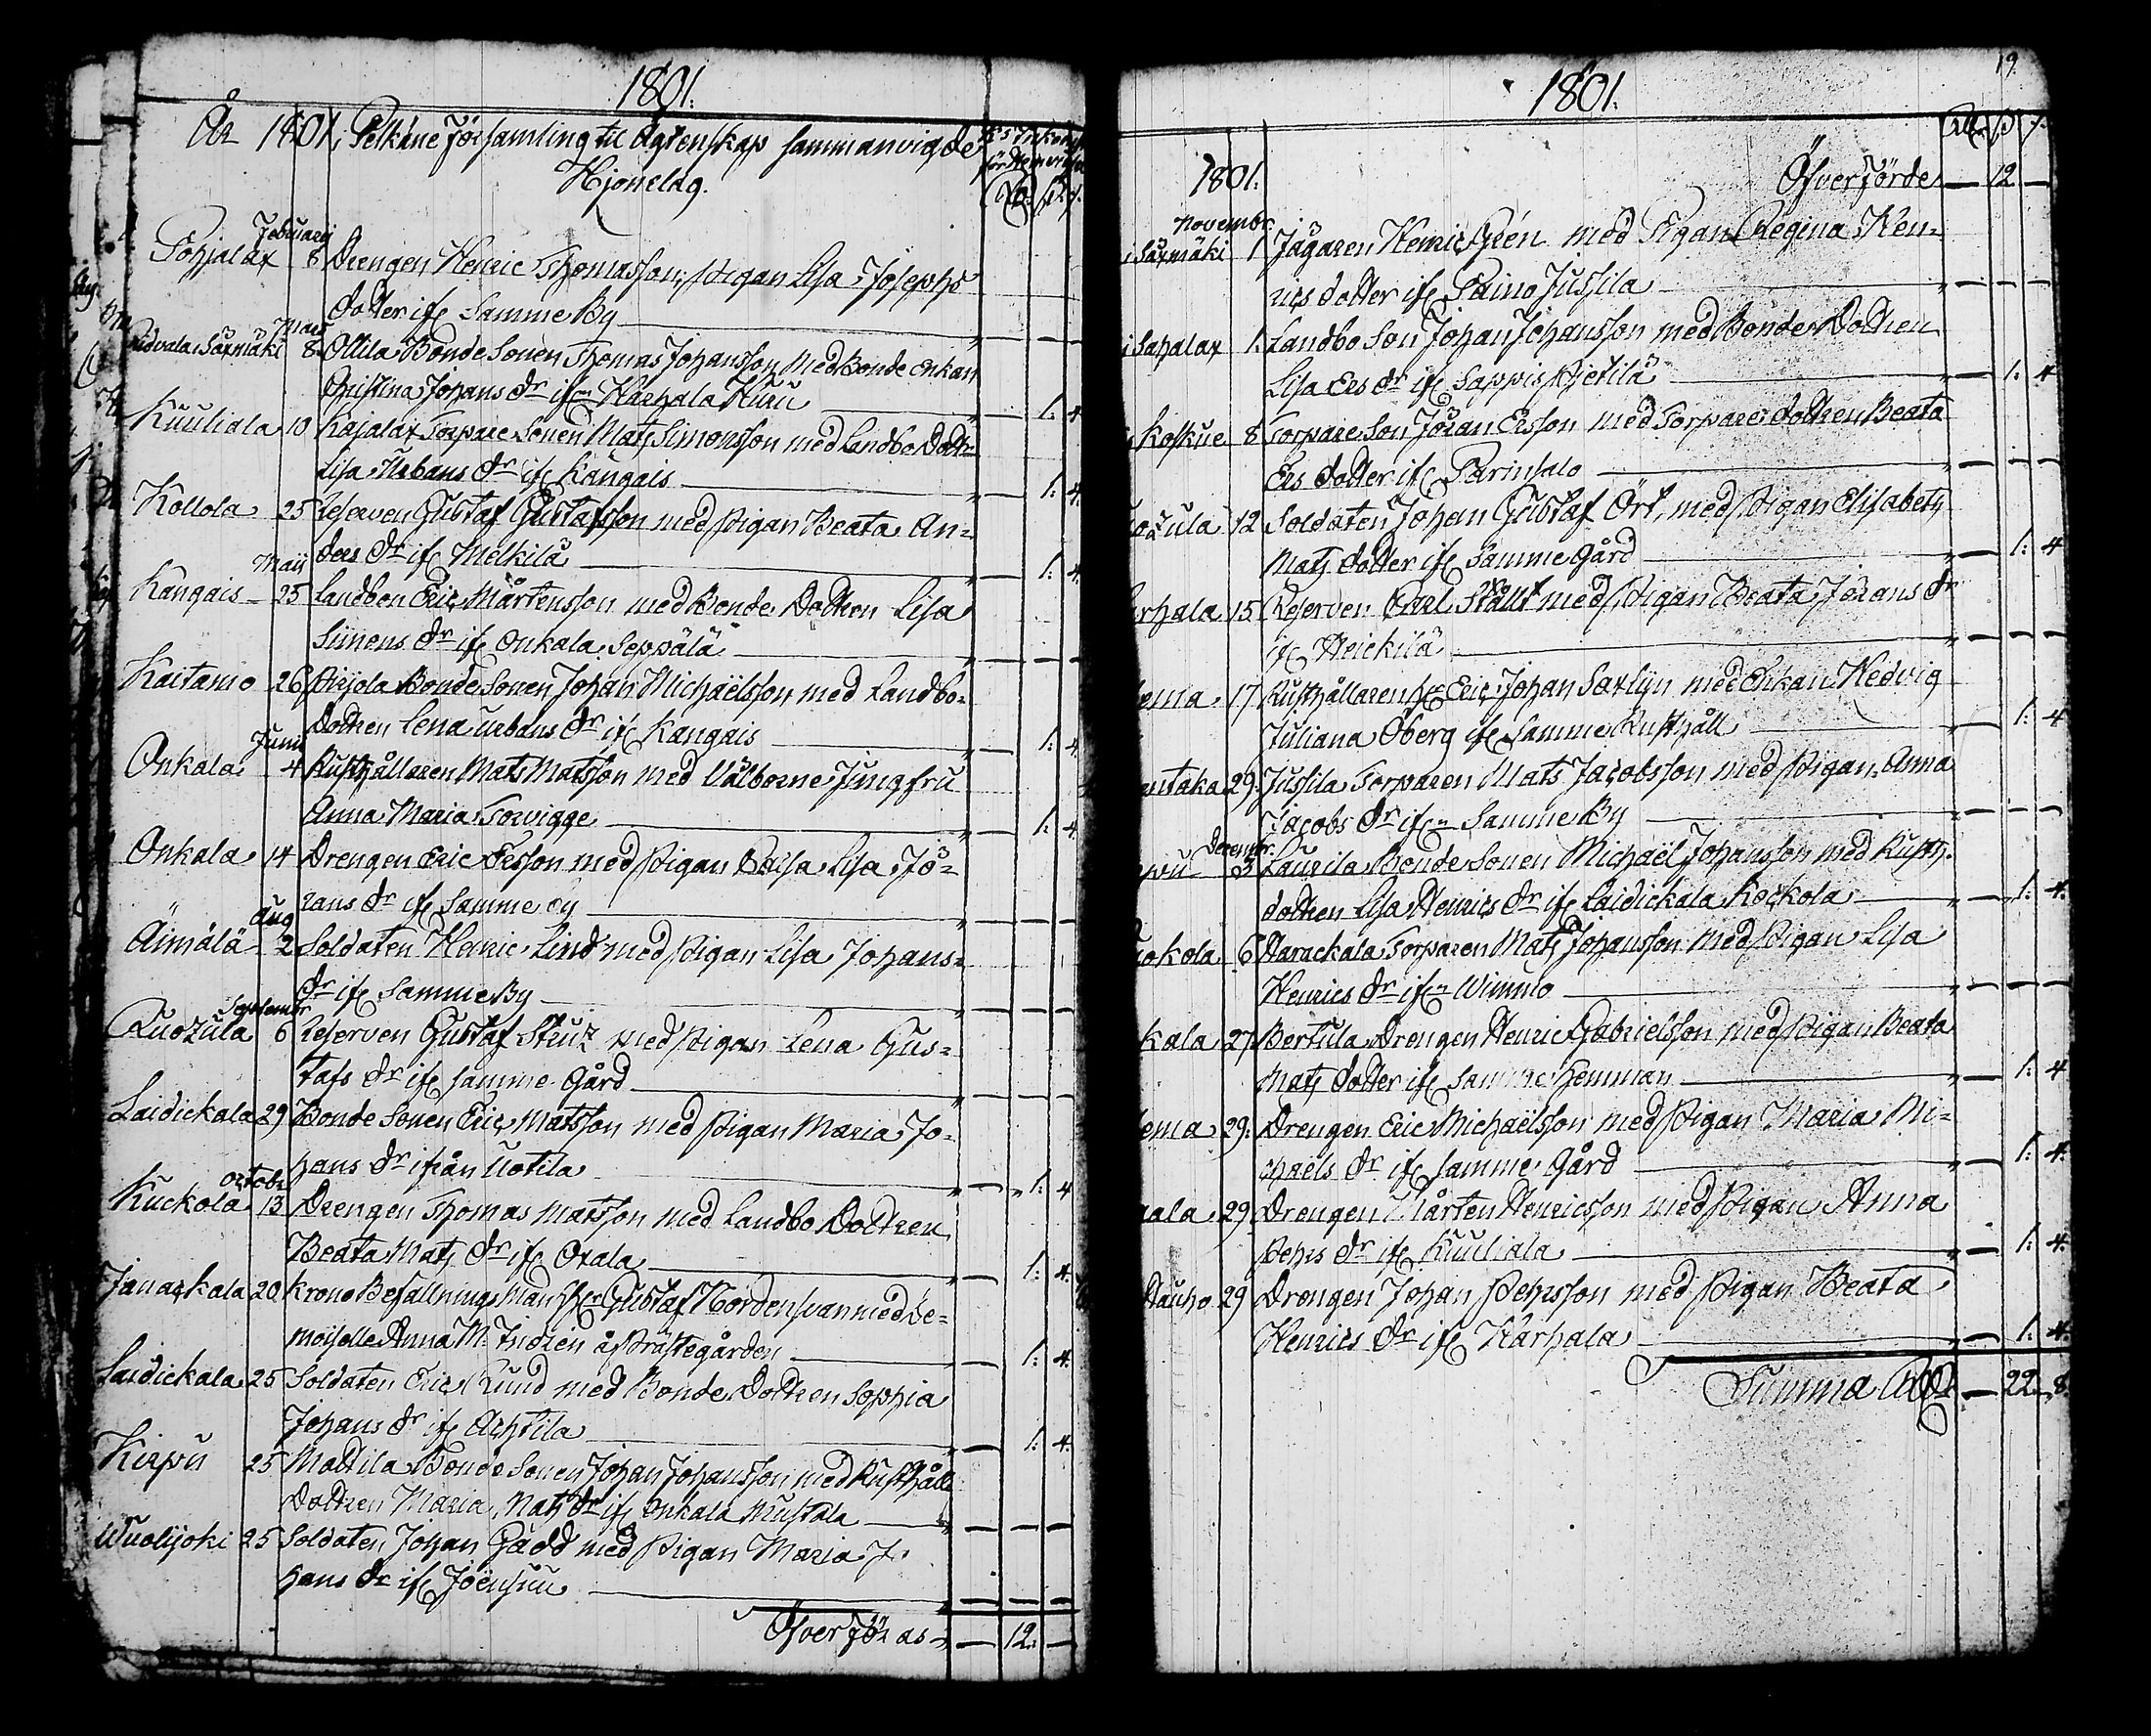 1801.
År 1801, Pelkäne Församling til Ägtenskap sammanvigde
Hjonelag.
Februarij
Pohjalax 8 Drengen Henric Thomasson, Pigan Lisa Josephs
dotter ifr Samme By
Mars
Ridvala, Säxmäki 8 Ollila Bonde Sonen Thomas Johansson med Bonde Enkan
Christina Johans dr ifrn Harhala Kuru 1: 4
Kuuliala 10 Kajalax Torpare Sonen Mats Simonsson med Landbo Dottr
Lisa Urbans dr ifr Kangais 1: 4
Kollola 25 Reserven Gustaf Gustafsson med Pigan Beata An=
ders dr ifr Mälkilä 1: 4
Maij
Kangais 25 Landbon Eric Mårtensson med Bonde Dottren Lisa
Simons dr ifr Onkala Seppälä
Kaitamo 26 Pirjola Bonde Sonen Johan Michaëlsson med Landbo=
Dottren Lena Urbans dr ifr Kangais 1: 4
Junii
Onkala 4 Rusthållaren Mats Matsson med Välborne Jungfru
Anna Maria Torvigge 1: 4
Onkala 14 Drengen Eric Ersson med Pigan Caisa Lisa Jö=
rans dr ifr Samme by
Aug
Äimälä 2 Soldaten Henric Lind med Pigan Lisa Johans=
dr ifr Samme By
Septembr
Ruozula 6 Reserven Gustaf Strutz med Pigan Lena Gus=
tafs dr ifr samme Gård
Laidickala 29 Bonde Sonen Eric Matsson med Pigan Maria Jo=
hans dr ifrån Uotila 1: 4
Octobr
Kuckola 13 Drengen Thomas Matsson med Landbo Dottren
Beata Mats dr ifr Orala 1: 4
Janackala 20 Krono Befallnings Man Hr Gustaf Nordensvan med De=
moiselle Anna M. Indrén af Prästegården 1: 4
Laidickala 25 Soldaten Eric Rund med Bonde Dottren Sophia
Johans dr ifr Achtila 1: 4
Kirpu 25 Mattila Bonde Sonen Johan Johansson med Rusthålls
Dottren Maria Mats dr ifr Onkala Mustala
Wuolijoki 25 Soldaten Johan Gädd med Pigan Maria Jo
hans dr ifr Joënsuu
Öfverföras 12.
19
1801.
1801. Öfverförde 12
Novembr.
Säxmäki 1 Jägaren Henric Grén med Pigan Regina Hen=
rics dotter ifr Paino Jussila
Sahalax 1. Landbo Son Johan Johansson med Bonde Dottren
Lisa Ers dr ifr Sappis Pjetilä 1: 4
Koskue 8 Torpare Son Jöran Ersson med Torpare dottren Beata
Ers dotter ifr Tarinsalo
ozula 12 Soldaten Johan Gustaf Ört, med Pigan Elisabeth
Mats dotter ifr Samme Gård 1: 4
rhala 15 Reserven Carl Stållt med Pigan Beata Jörans dr
ifr Heickilä
ema 17 Rusthållaren Hr Eric Johan Saxlijn med Enkan Hedvig
Juliana Öberg ifr Samme Rusthåll 1: 4
ntaka 29. Jussila Torparen Mats Jacobsson med Pigan Anna
Jacobs dr ifrn Samme By
Decembr.
pu 3 Laurila Bonde Sonen Michaël Johansson med Rusth.
dottren Lisa Henrics dr ifr Laidickala Kockola 1: 4.
okola 6 Harackala Torparen Mats Johansson med Pigan Lisa
Henrics dr ifrn Wimmo
kala 27. Bertula Drengen Henric Gabrielsson med Pigan Beata
Mats dotter ifr samme hemman 1: 4
ema 29. Drengen Eric Michaëlsson med Pigan Maria Mi=
chaëls dr ifr samme Gård 1: 4.
ala 29. Drengen Mårten Henricsson med Pigan Anna
Pehrs dr ifr Kuuliala 1: 4.
Hauho 29 Drengen Johan Pehrsson med Pigan Beata
Henrics dr ifr Harhala 1: 4.
Summa Rdr 22. 8.